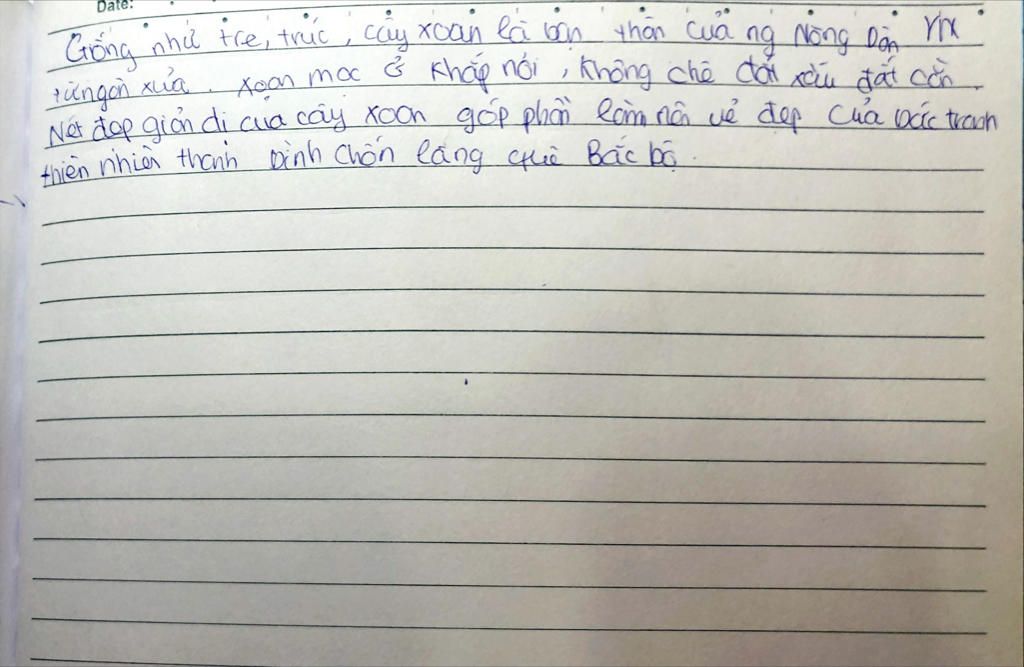 Date:
Giống như tre, trúc, cây xoan là bạn thân của ng Nông Dân VN
từ ngàn xưa. Xoan mọc ở khắp nơi, không chê đất xấu đất cằn.
Nét đẹp giản dị của cây xoan góp phần làm nên vẻ đẹp của bức tranh
thiên nhiên thanh bình chốn làng quê Bắc bộ.